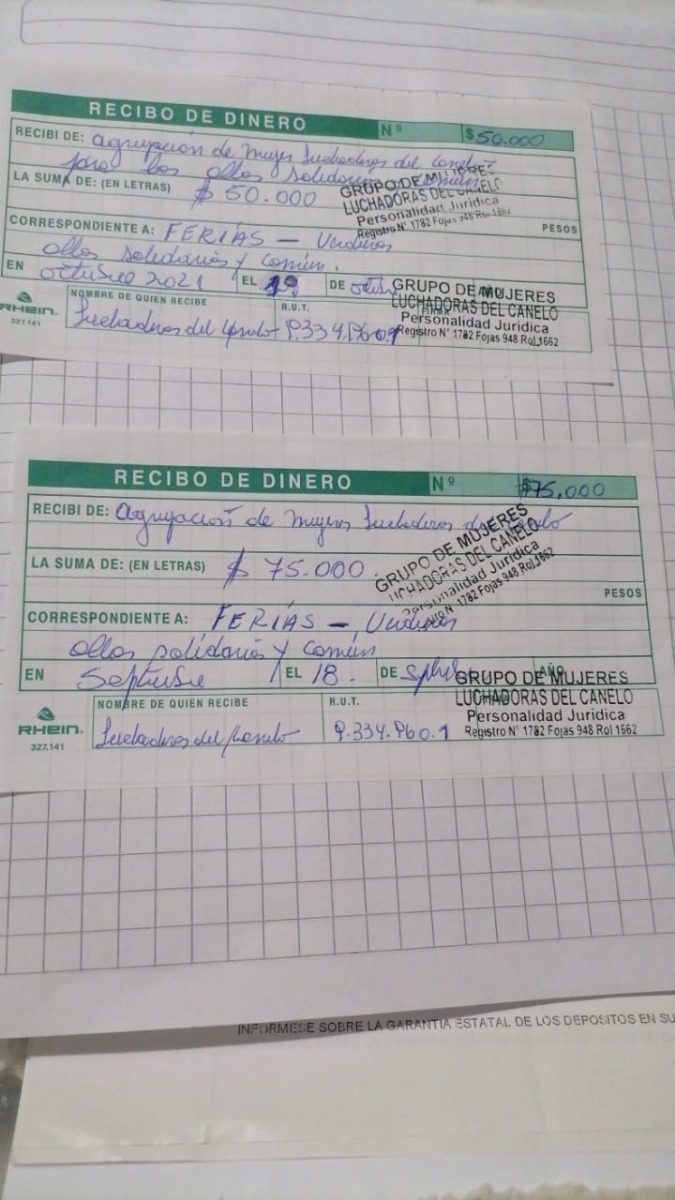 RECIBO DE DINERO Nº $50.000
RECIBI DE: agrupación de Mujer luchadoras del Canelo
para las ollas solidarias
LA SUMA DE: (EN LETRAS) $ 50.000
GRUPO DE MUJERES
LUCHADORAS DEL CANELO
Personalidad Juridica
Registro N° 1782 Fojas 948 Rol 1662
PESOS
CORRESPONDIENTE A: FERIAS - Verduras
ollas solidarias y común.
EN octubre 2021 EL 19 DE octubre AÑO
GRUPO DE MUJERES
LUCHADORAS DEL CANELO
Personalidad Juridica
Registro N° 1782 Fojas 948 Rol 1662
RHEIN.
327.141
NOMBRE DE QUIEN RECIBE
Luchadoras del Canelo
R.U.T.
RECIBO DE DINERO Nº $75,000
RECIBI DE: Agrupación de Mujeres Luchadoras del Canelo
LA SUMA DE: (EN LETRAS) $ 75.000
GRUPO DE MUJERES
LUCHADORAS DEL CANELO
Personalidad Juridica
Registro N° 1782 Fojas 948 Rol 1662
PESOS
CORRESPONDIENTE A: FERIAS - Verduras
ollas solidarias y común
EN Septiembre EL 18. DE AÑO
GRUPO DE MUJERES
LUCHADORAS DEL CANELO
Personalidad Juridica
Registro N° 1782 Fojas 948 Rol 1662
RHEIN.
327.141
NOMBRE DE QUIEN RECIBE
Luchadoras del Canelo
R.U.T.
INFORMESE SOBRE LA GARANTIA ESTATAL DE LOS DEPOSITOS EN SU